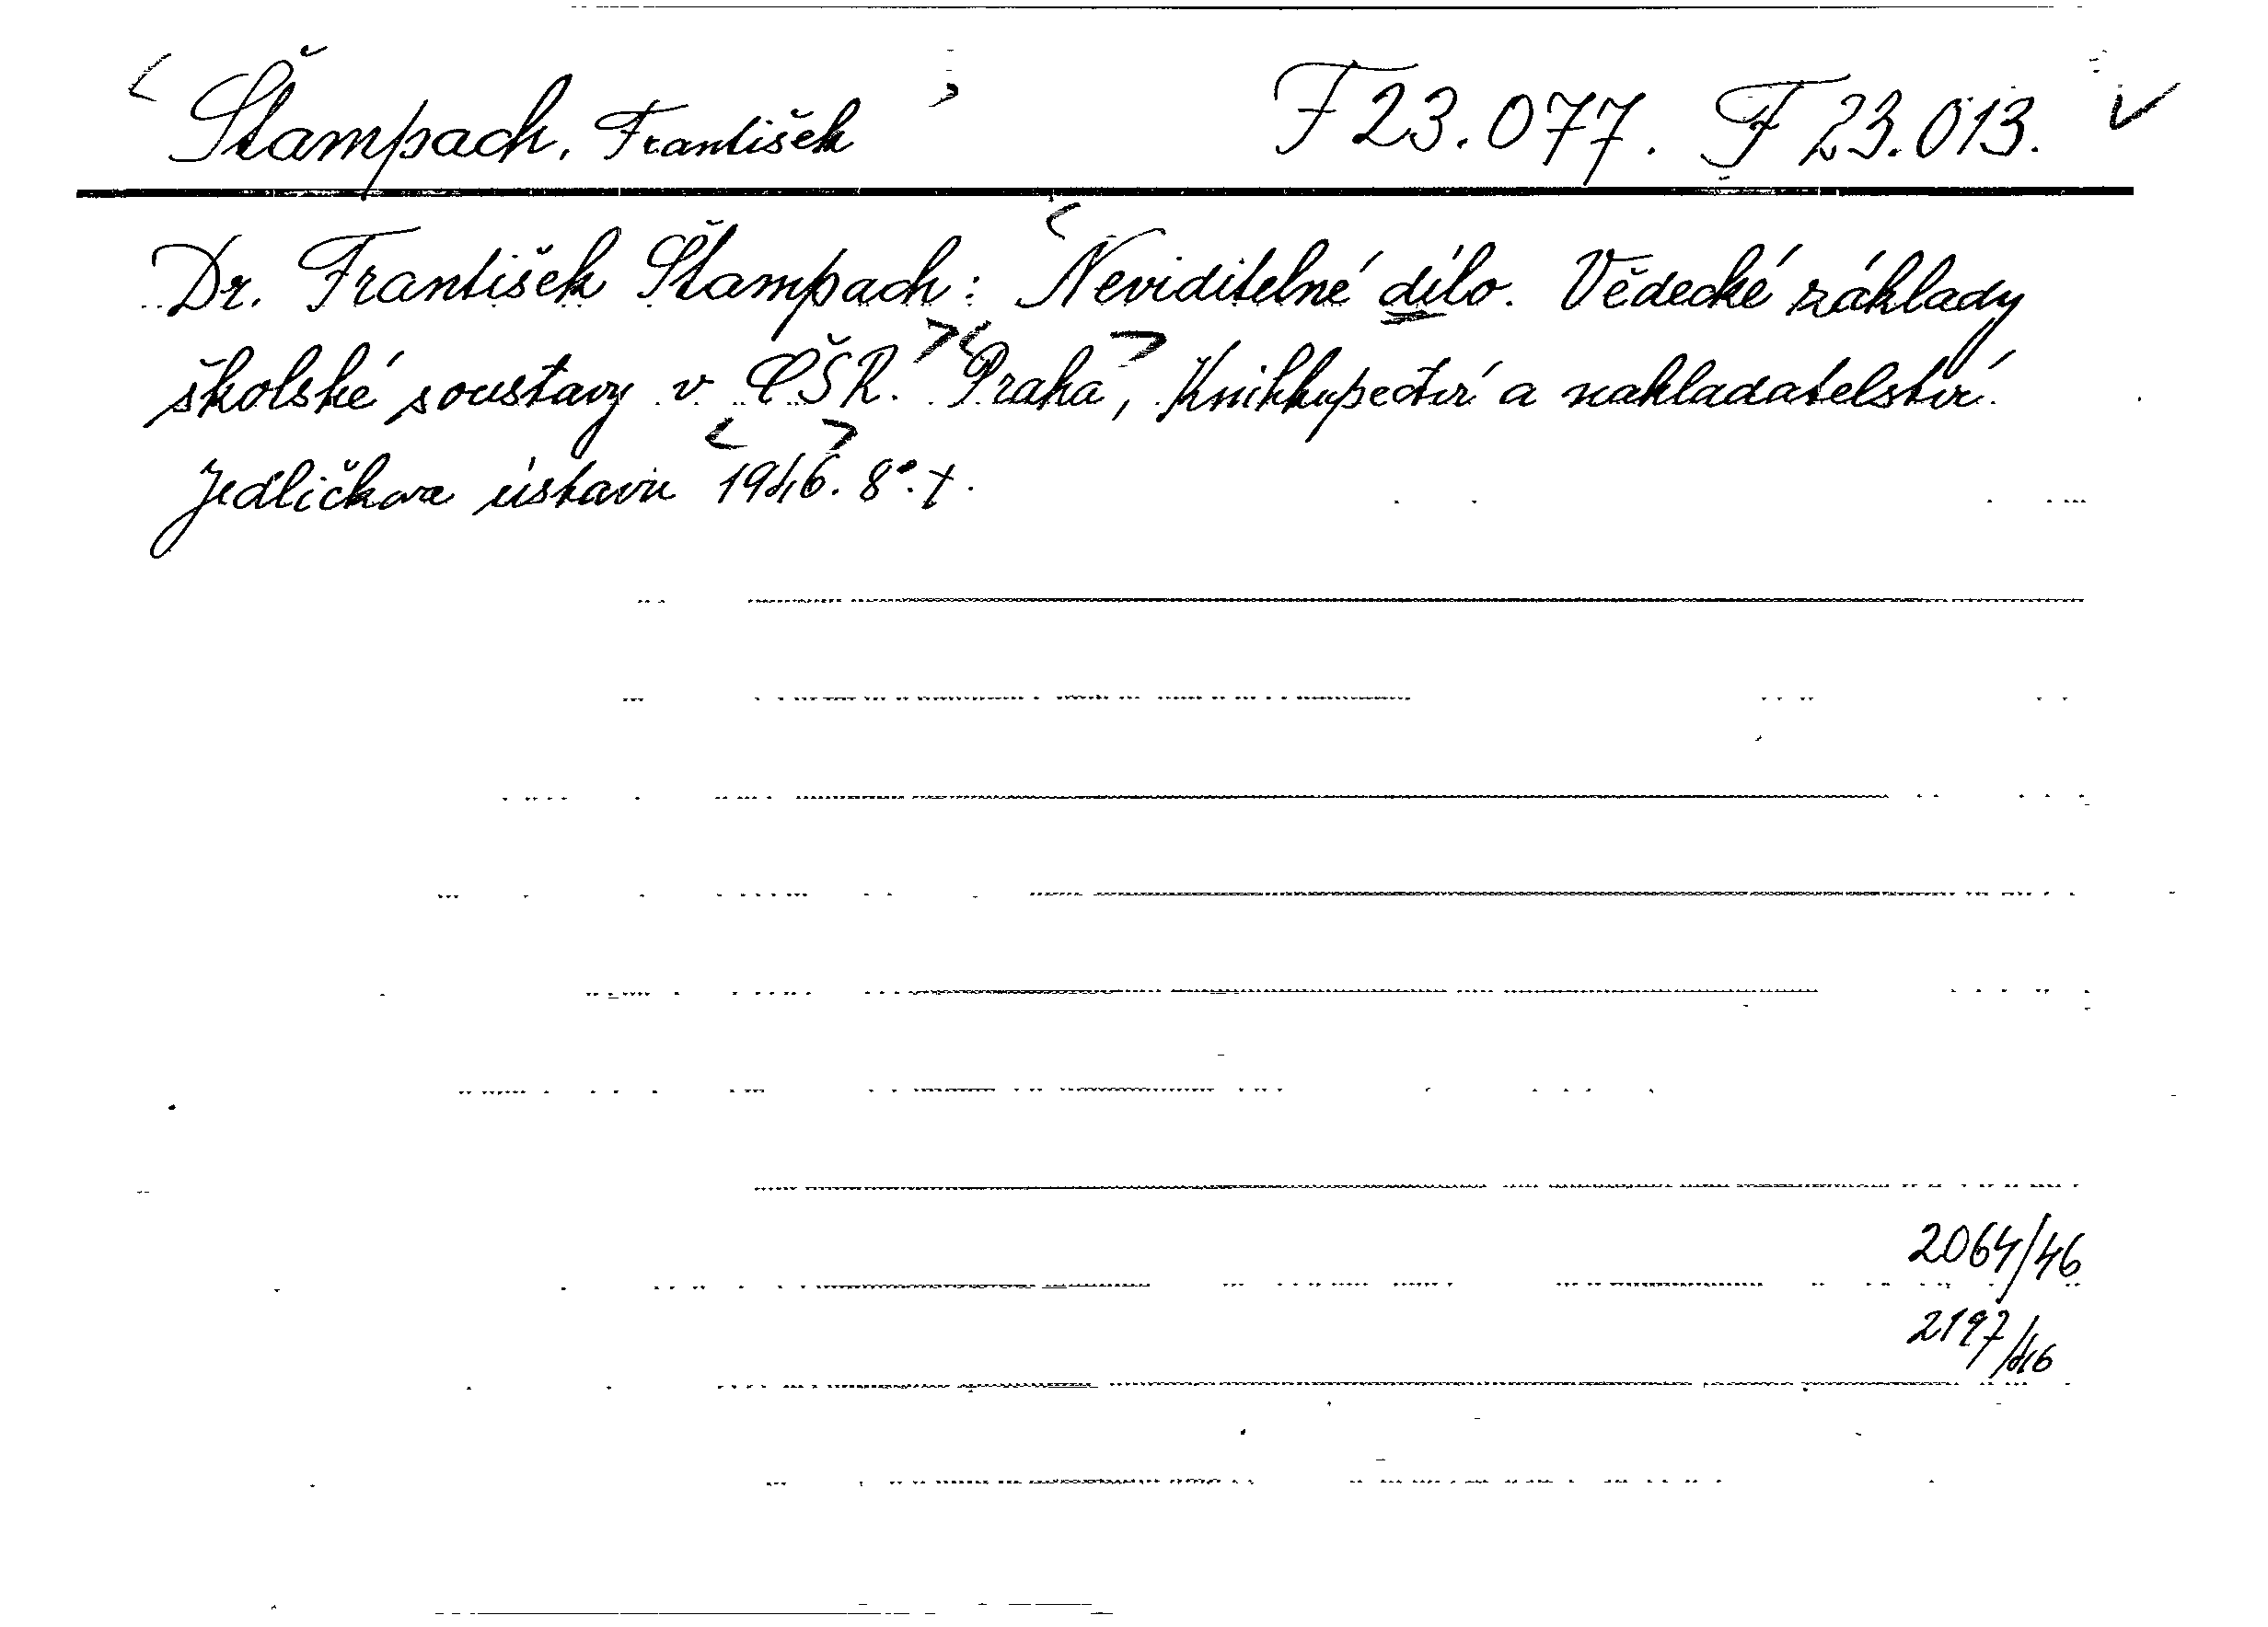 Štampach, František F 23.077. F 23.013.
Dr. František Štampach: Neviditelné dílo. Vědecké základy
školské soustavy v ČSR. Praha, Knihkupectví a nakladatelství
Jedličkova ústavu 1946. 8°.
2064/46
2197/46